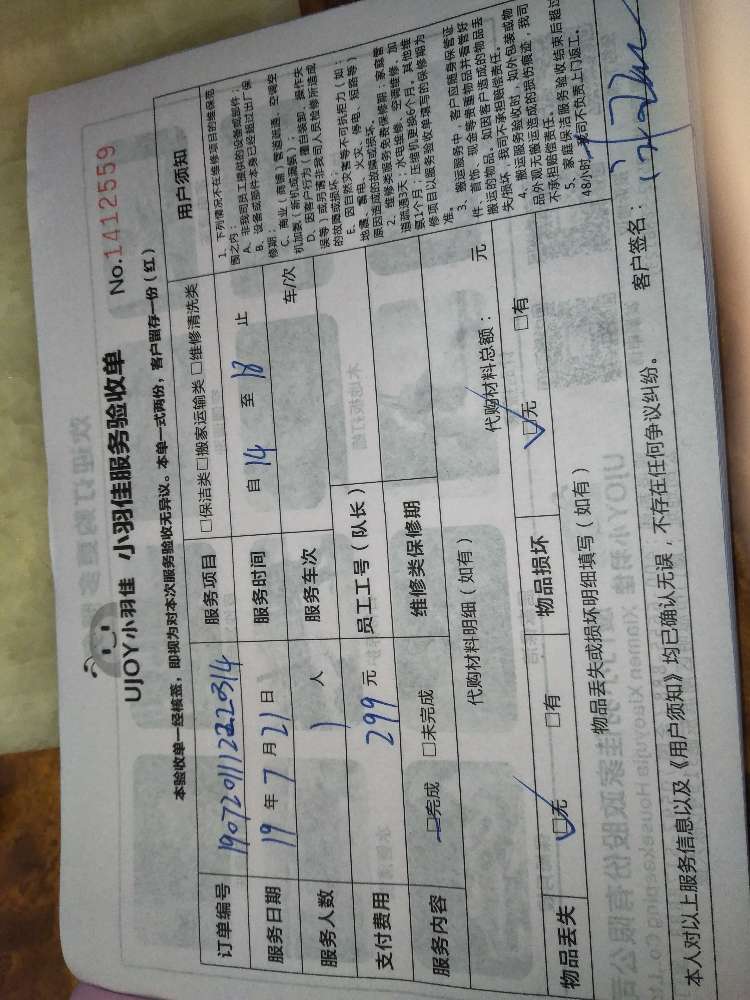 UJOY小羽佳 小羽佳服务验收单 No.1412559
本验收单一经核签，即视为对本次服务验收无异议。本单一式两份，客户留存一份（红）
订单编号 服务项目 □保洁类□搬家运输类 □维修清洗类
服务日期 19 年 7 月 21 日 服务时间 自 14 至 18 止
服务人数 1 人 服务车次 车/次
支付费用 299 元 员工工号（队长）
服务内容 □完成 □未完成 维修类保修期
代购材料明细（如有） 代购材料总额： 元
物品丢失 □无 □有 物品损坏 □无 □有
物品丢失或损坏明细填写（如有）
用户须知
1、下列情况不在维修项目的维保范
围之内：
A、非我司员工提供的设备或部件；
B、设备或部件本身已经超过出厂保
修期；
C、商业（商铺）管道疏通、空调空
机加氟（新机或漏氟）；
D、因客户行为（擅自装卸、操作失
误等）或另请非我司人员检修所造成
的故障或损坏；
E、因自然灾害等不可抗拒力（如：
地震、雷电、火灾、停电、短路等）
原因造成的故障或损坏。
2、维修类服务免费保修期：家庭管
道疏通3天；水电维修、空调维修、加
氟1个月；压缩机更换6个月。其他维
修项目以服务验收单填写的保修期为
准。
3、搬运服务中，客户应随身保管证
件、首饰、现金等贵重物品并看管好
搬运的物品。如因客户造成的物品丢
失损坏，我司不承担赔偿责任。
4、搬运服务验收时，如外包装或物
品外观无搬运造成的损伤痕迹，我司
不承担赔偿责任。
5、家庭保洁服务验收结束后超过
48小时，我司不负责上门返工。
本人对以上服务信息以及《用户须知》均已确认无误，不存在任何争议纠纷。 客户签名：